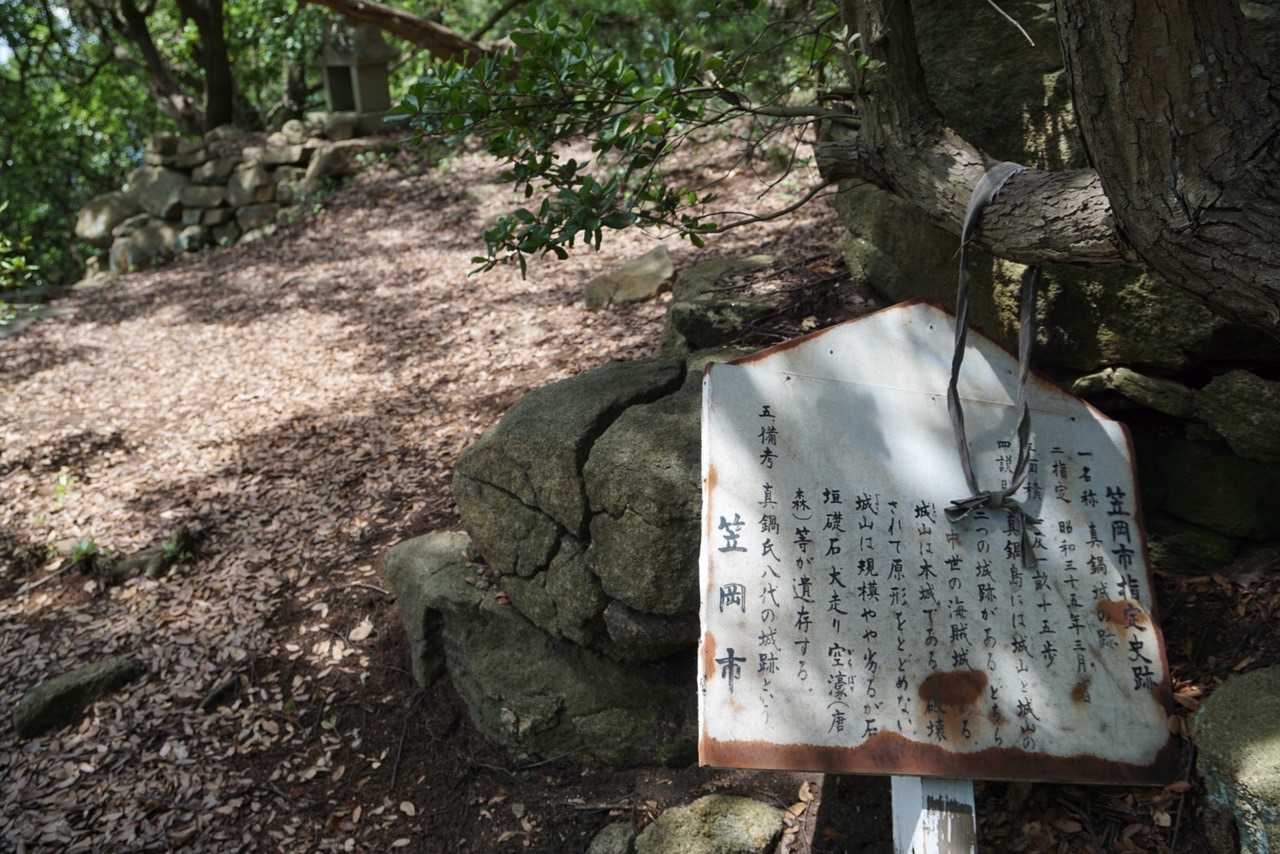 笠岡市指定史跡
一名称 真鍋城の跡
二指定 昭和三十五年三月
三面積 二反一畝十五歩
四説明 二つの城跡がある。どちら
真鍋島には城山と城山の
中世の海賊城
城山は本城である 破壊
されて原形をとどめない
城山は規模やや劣るが石
垣礎石犬走り空濠(唐
森)等が遺存する。
五備考 真鍋氏八代の城跡という
笠岡市